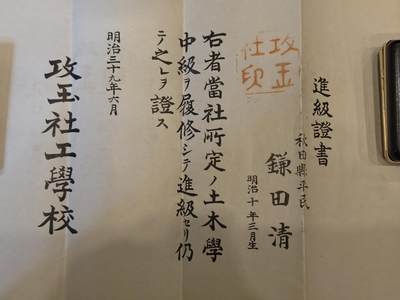 進級證書
秋田縣平民
鎌田清
明治十年三月生
攻玉
社印
右者當社所定ノ土木學
中級ヲ履修シテ進級セリ仍
テ之レヲ證ス
明治三十九年六月
攻玉社工學校